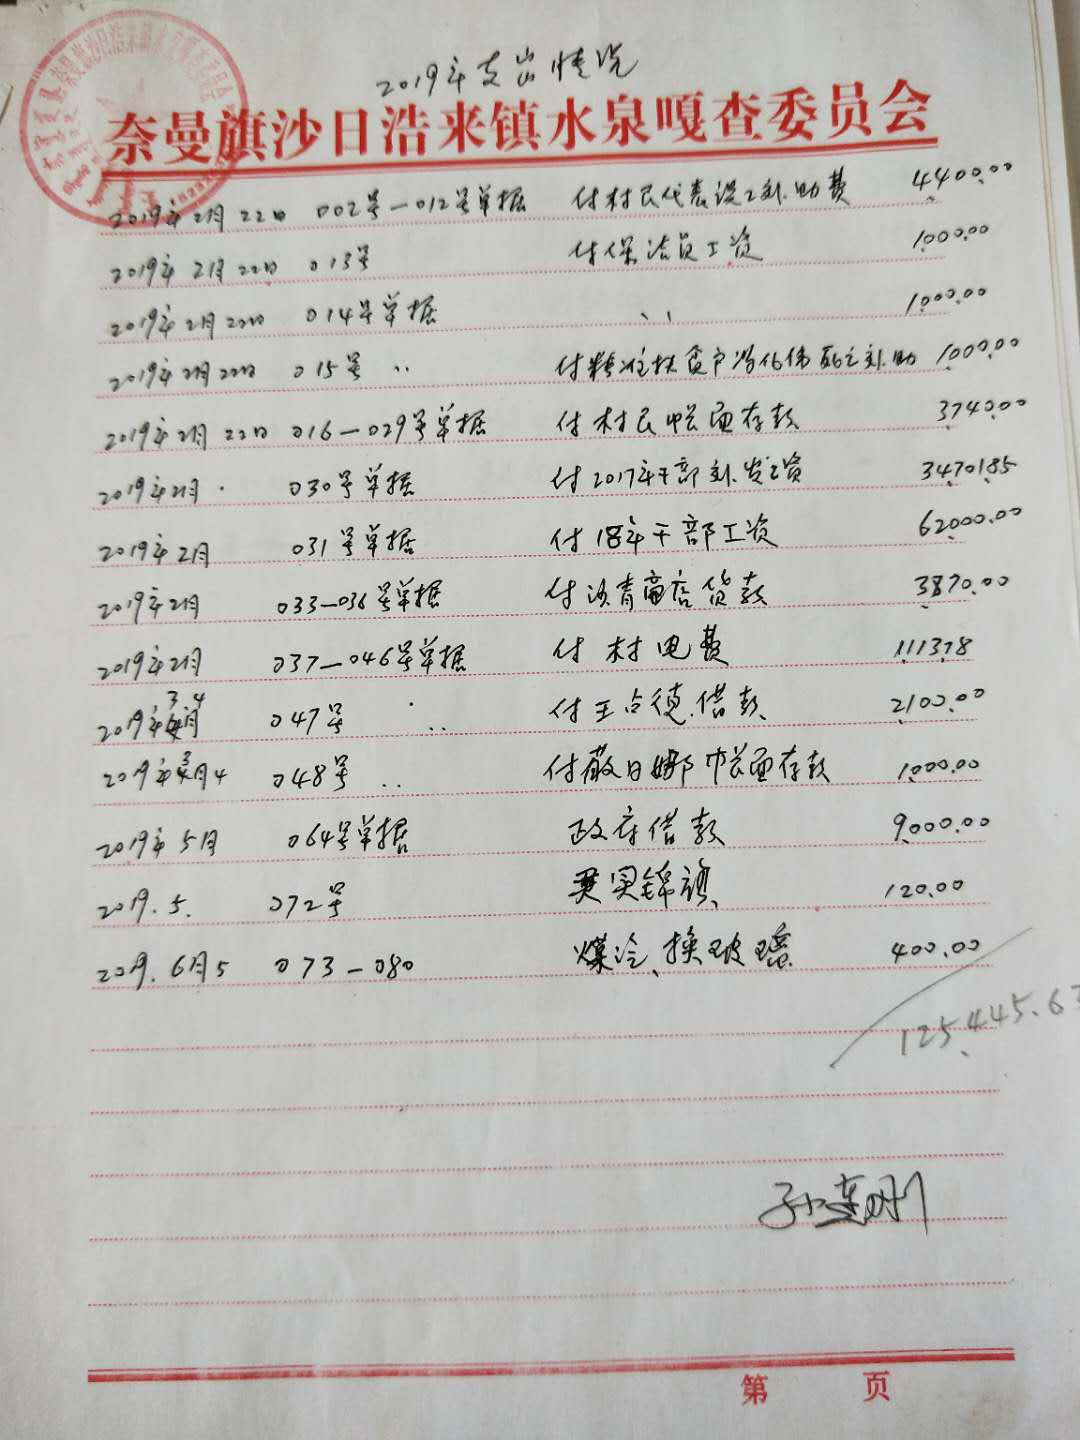 2019年支出情况
奈曼旗沙日浩来镇水泉嘎查委员会
2019年2月22日 002号—012号单据 付村民代表误工补助费 4400.00
2019年2月22日 013号 付保洁员工资 1000.00
2019年2月22日 014号单据 〃 1000.00
2019年2月22日 015号 〃 付精准扶贫户 死亡补助 1000.00
2019年2月22日 016—029号单据 付村民帐面存款 3740.00
2019年2月. 030号单据 付2017年干部补发工资 34701.85
2019年2月 031号单据 付18年干部工资 62000.00
2019年2月 033—036号单据 付 商店货款 3870.00
2019年2月 037—046号单据 付村电费 1113.78
2019年3月4 047号 〃 付王占德借款 2100.00
2019年3月4 048号 〃 付 日娜帐面存款 1000.00
2019年5月 064号单据 政府借款 9000.00
2019.5. 072号 锦旗 120.00
2019.6月5 073—080 换玻璃 400.00
125445.63
孙连刚
第 页